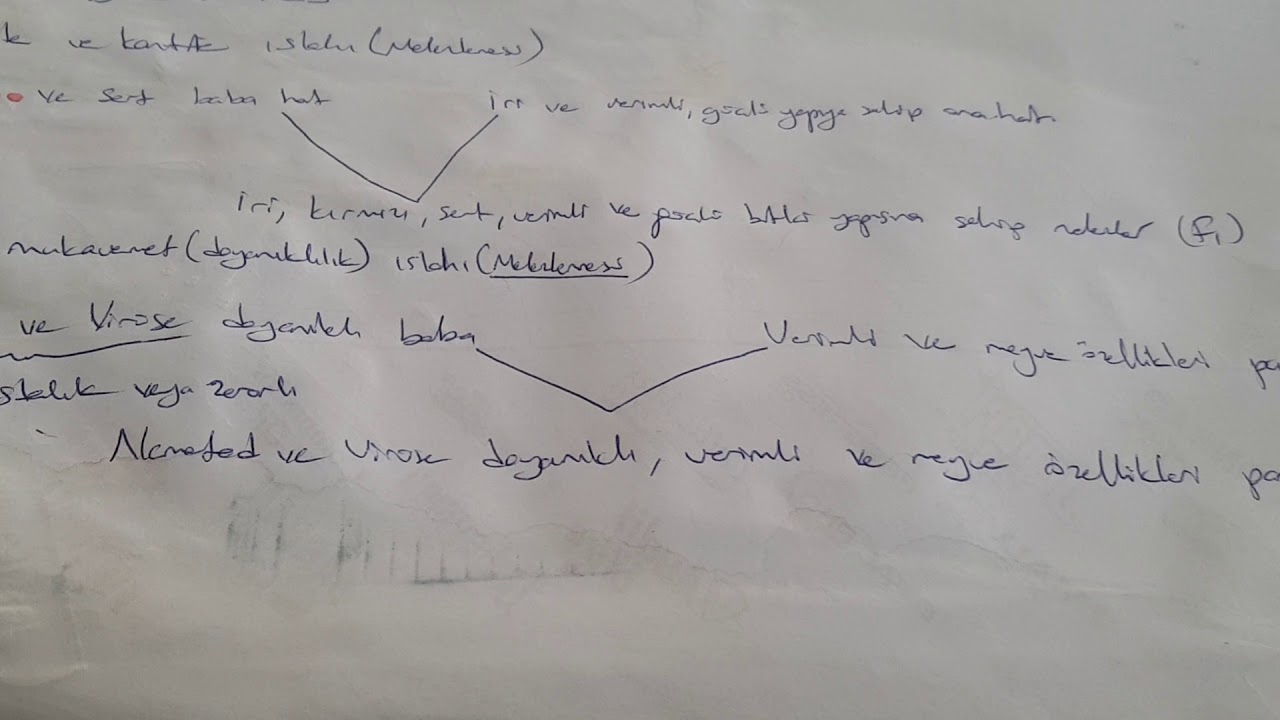 ve kantite ıslahı (Melezleme)
ve sert baba hat
iri ve verimli, güçlü yapıya sahip ana hat
iri, kırmızı, sert, verimli ve güçlü bitki yapısına sahip melezler (F1)
mukavemet (dayanıklılık) ıslahı (Melezleme)
ve Viröse dayanıklı baba
Verimli ve meyve özellikleri
veya zararlı
Nematod ve Viröse dayanıklı, verimli ve meyve özellikleri